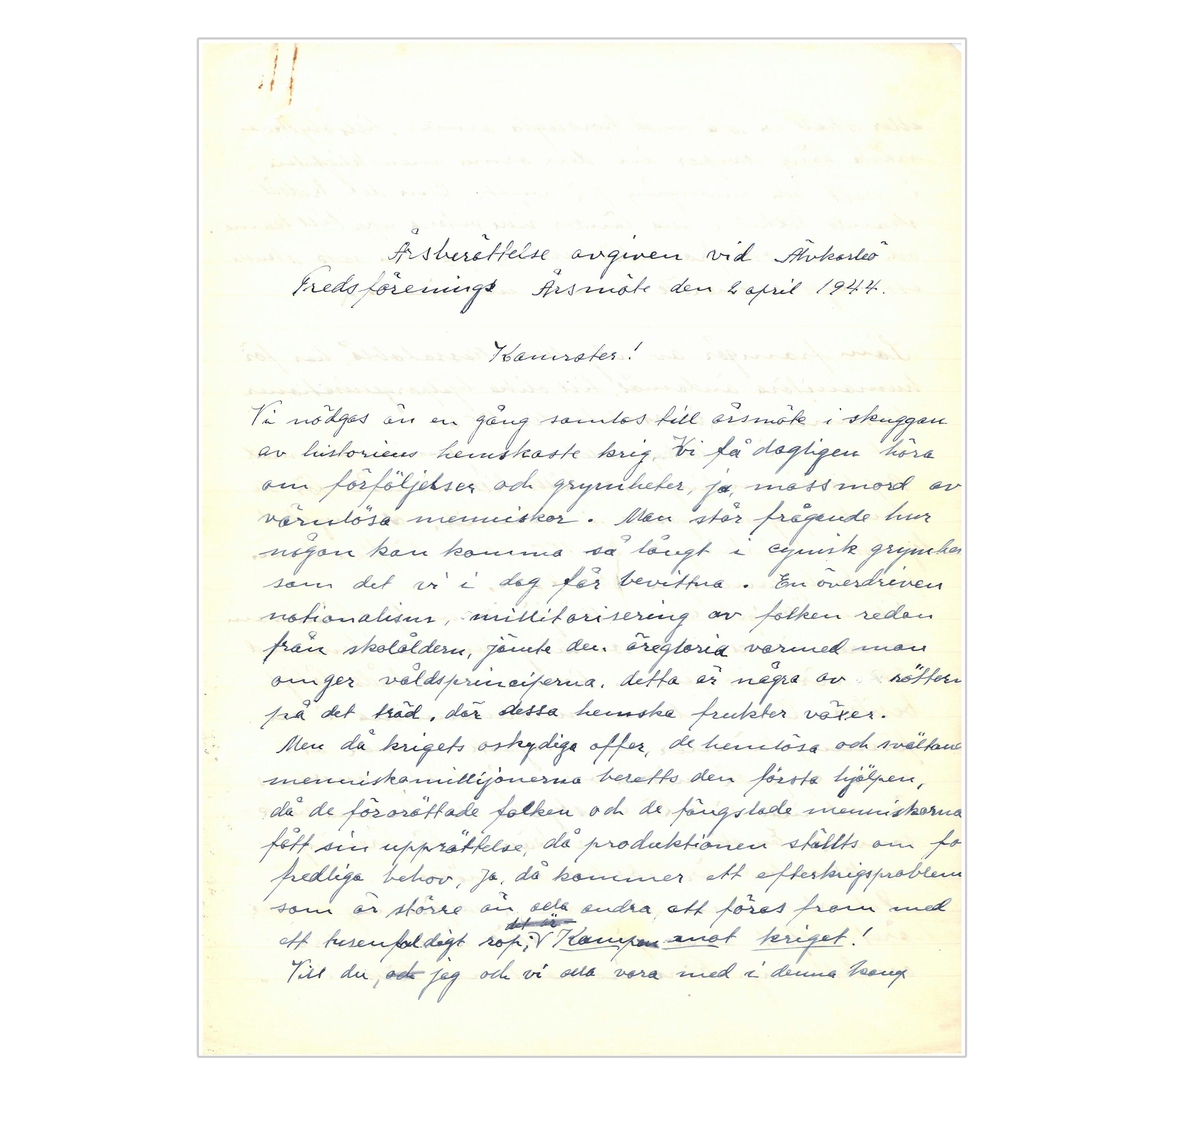 Årsberättelse avgiven vid Älvkarleö
Fredsförenings Årsmöte den 2 april 1944.
Kamrater!
Vi nödgas än en gång samlas till årsmöte i skuggan
av historiens hemskaste krig. Vi få dagligen höra
om förföljelser och grymheter, ja, massmord av
värnlösa menniskor. Man står frågande hur
någon kan komma så långt i cynisk grymhe
som det vi i dag får bevittna. En överdriven
nationalism, millitarisering av folken redan
från skolåldern, jämte den äregloria varmed man
omger våldsprinciperna, detta är några av rötter
på det träd, där dessa hemska frukter växer.
Men då krigets oskydiga offer, de hemlösa och svältand
menniskomillijonerna beretts den första hjälpen,
då de förorättade folken och de fängslade menniskorna
fått sin upprättelse, då produktionen ställts om fö
fredliga behov, ja, då kommer ett efterkrigsproblem
som är större än alla andra att föras fram med
det är
ett tusenfaldigt rop; Kampen mot kriget!
Vill du, och jag och vi alla vara med i denna kamp